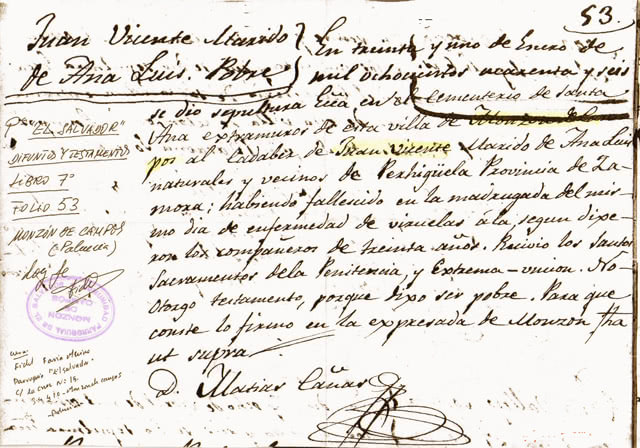 53.
Juan Vicente Marido
de Ana Luis. Pobre
En treinta y uno de Enero de
mil ochocientos quarenta y seis
se dio sepultura Ecca. en el Cementerio de Santa
Ana extramuros de esta villa de Monzon de Cam
pos al Cadaber de Juan Vicente Marido de Ana Luis
naturales y vecinos de Periguela Provincia de Za
mora; habiendo fallescido en la madrugada del mis
mo dia de enfermedad de viruelas á la, segun dixe
ron los compañeros de treinta años. Recivio los Santos
Sacramentos de la Penitencia, y Extrema-uncion. No
Otorgo testamento, porque dixo ser pobre. Para que
conste lo firmo en la expresada de Monzon fha
ut supra
D. Matias Cañas
Pª "EL SALVADOR"
DIFUNTOS Y TESTAMENTOS
LIBRO 7º
FOLIO 53
MONZÓN DE CAMPOS
(Palencia)
Doy fe
Fidel
PARROQUIAL DE EL SAL
MONZON
DE
CAMPOS
Fidel
Parroquia "El Salvador"